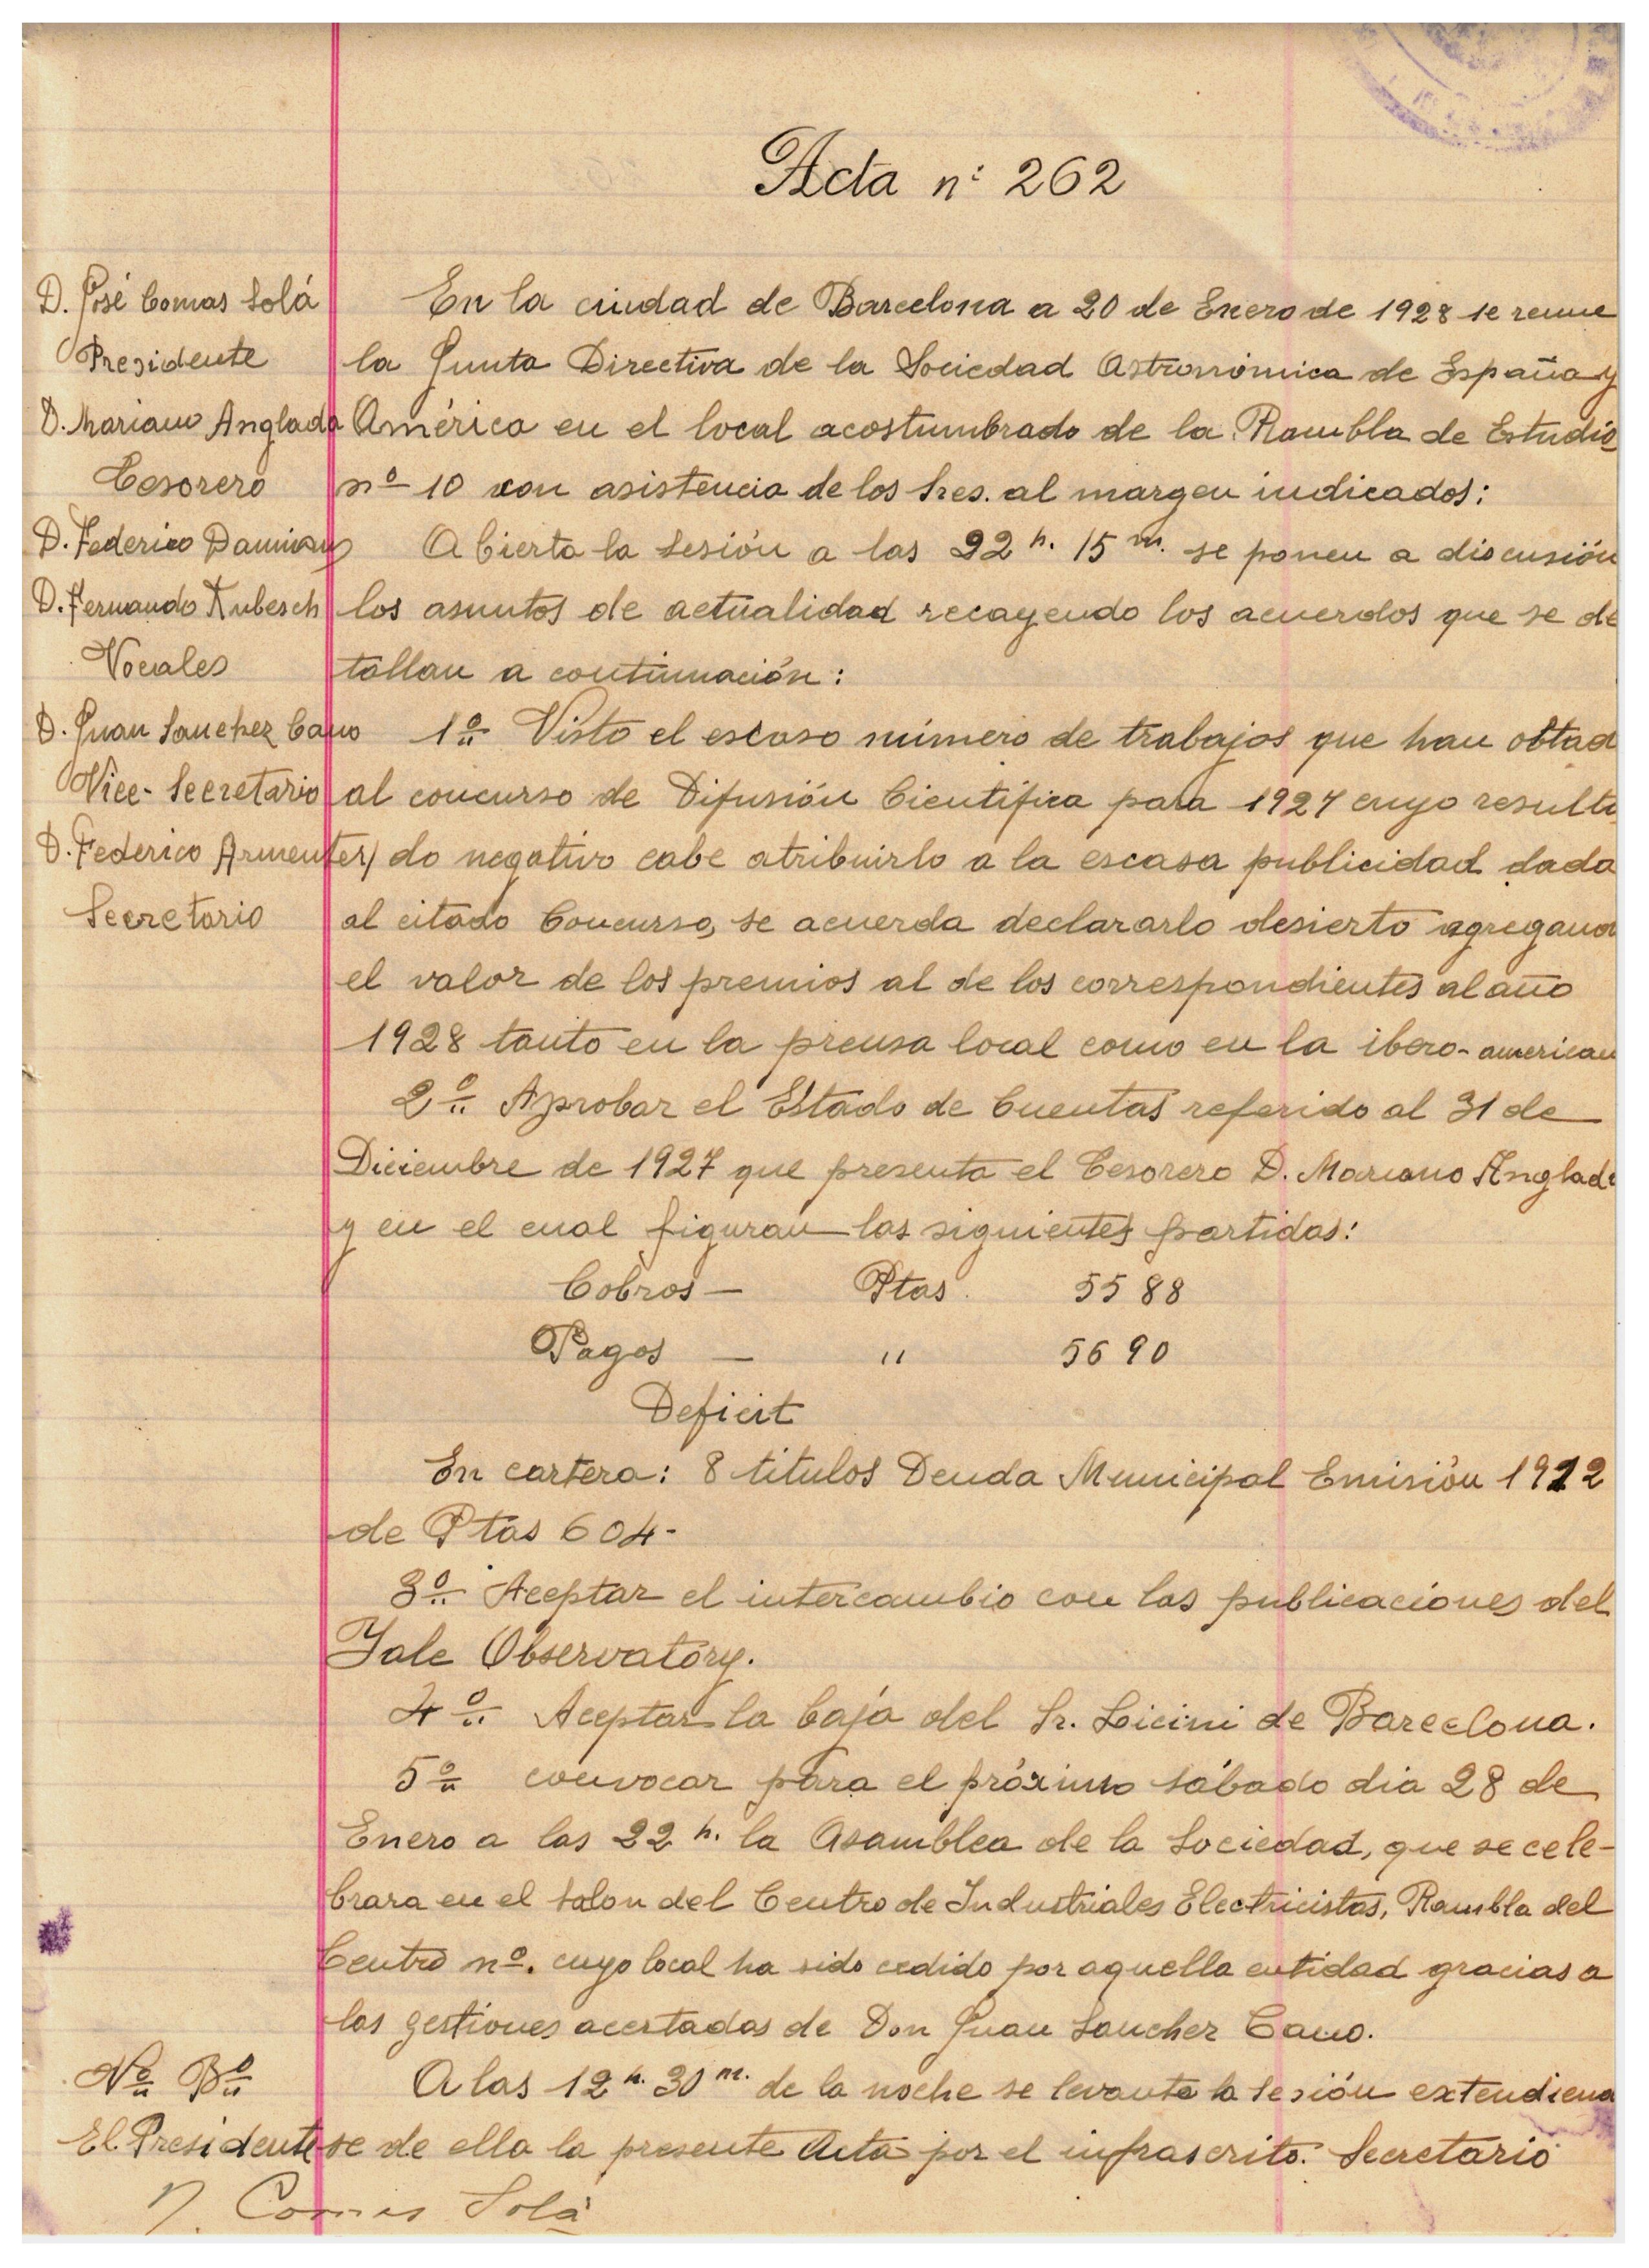 Acta nº 262
D. José Comas Solá
Presidente
D. Mariano Anglada
Tesorero
D. Federico Damians
D. Fernando Kubesch
Vocales
D. Juan Sanchez Cano
Vice-Secretario
D. Federico Armenter
Secretario
En la ciudad de Barcelona a 20 de Enero de 1928 se reune
la Junta Directiva de la Sociedad Astronómica de España y
América en el local acostumbrado de la Rambla de Estudio
nº 10 con asistencia de los Sres. al margen indicados:
Abierta la Sesión a las 22 h. 15 m. se ponen a discusión
los asuntos de actualidad recayendo los acuerdos que se de
tallan a continuación:
1º Visto el escaso número de trabajos que han obtad
al concurso de Difusión Cientifica para 1927 cuyo resulta
do negativo cabe atribuirlo a la escasa publicidad dada
al citado Concurso, se acuerda declararlo desierto agregand
el valor de los premios al de los correspondientes al año
1928 tanto en la prensa local como en la ibero-american
2º Aprobar el Estado de Cuentas referido al 31 de
Diciembre de 1927 que presenta el Tesorero D. Mariano Anglad
y en el cual figuran las siguientes partidas:
Cobros — Ptas. 5588
Pagos — " 5690
Deficit
En cartera: 8 titulos Deuda Municipal Emisión 1912
de Ptas 604-
3º Aceptar el intercambio con las publicaciones del
Yale Observatory.
4º Aceptar la baja del Sr. Licini de Barcelona.
5º convocar para el próximo sábado dia 28 de
Enero a las 22 h. la Asamblea de la Sociedad, que se cele-
brara en el salon del Centro de Industriales Electricistas, Rambla del
Centro nº. cuyo local ha sido cedido por aquella entidad gracias a
las gestiones acertadas de Don Juan Sancher Cano.
A las 12 h. 30 m. de la noche se levanta la sesión extendiend
se de ella la presente Acta por el infrascrito. Secretario
Vº Bº
El Presidente
J. Comas Solá